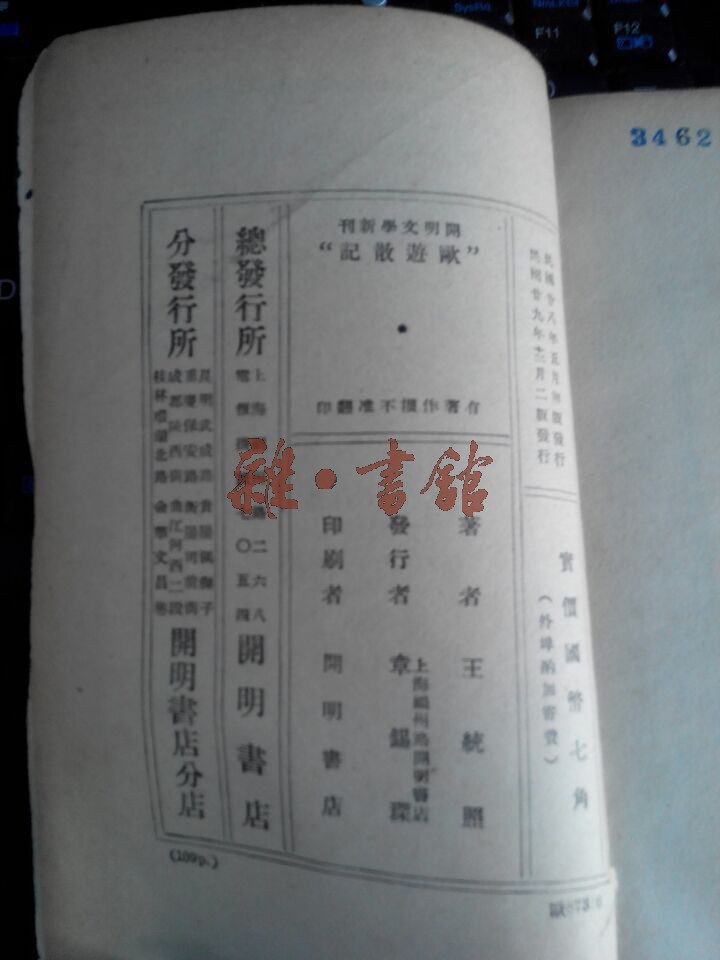 SysRq
NmLk
F11
F12
3462
民國廿八年五月初版發行
民國廿九年十二月二版發行
實價國幣七角
(外埠酌加寄費)
刊新學文明開
“記散遊歐”
印翻准不權作著有
著者 王統照
發行者 章錫琛
上海福州路開明書店
印刷者 開明書店
總發行所
上海
路二六八
七〇五四
開明書店
分發行所
昆明武成路 貴陽
重慶保安路 衡陽司前街
成都陝西街 曲江河西二段
桂林環湖北路 金華文昌巷
開明書店分店
(109p.)
雜·書館